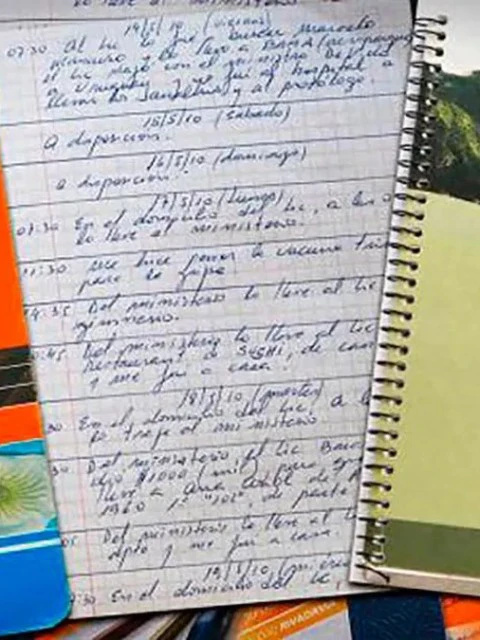 lo llevé al ministerio
14/5/10 (viernes)
07:30 Al Lic lo fui a buscar Marcelo
y lo llevó a (aeroparque)
el Lic viajó con el ministro De Vido
a Uruguay y yo fui al hospital a
llevar los y al
15/5/10 (sabado)
a disposición.
16/5/10 (domingo)
a disposición.
17/5/10 (Lunes)
07:30 En el domicilio del Lic, a las
lo llevé al ministerio.
11:30 me hice poner la vacuna
para la gripe
14:35 Del ministerio lo llevé al Lic
gimnasio.
:45 Del ministerio lo llevé al Lic
restaurant de SUSHI, de
y me fui a casa.
18/5/10 (martes)
30 En el domicilio del Lic, a la
lo traje al ministerio.
30 Del ministerio el Lic
$1000 (mil) para
llevé a calle de
1960 1º "102", de parte
05 Del ministerio lo llevé al
dpto y me fui a casa.
19/5/10 (mierc
:30 En el domicilio del Lic,
RIVADAVIA